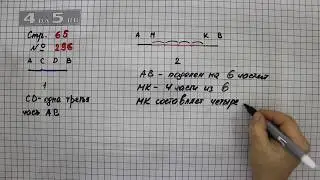 4 DA 5 DB
Стр. 65
№ 296
A C D B
1
CD - одна третья
часть AB
A M K B
2
AB - поделен на 6 частей
MK - 4 части из 6
MK составляет четыре